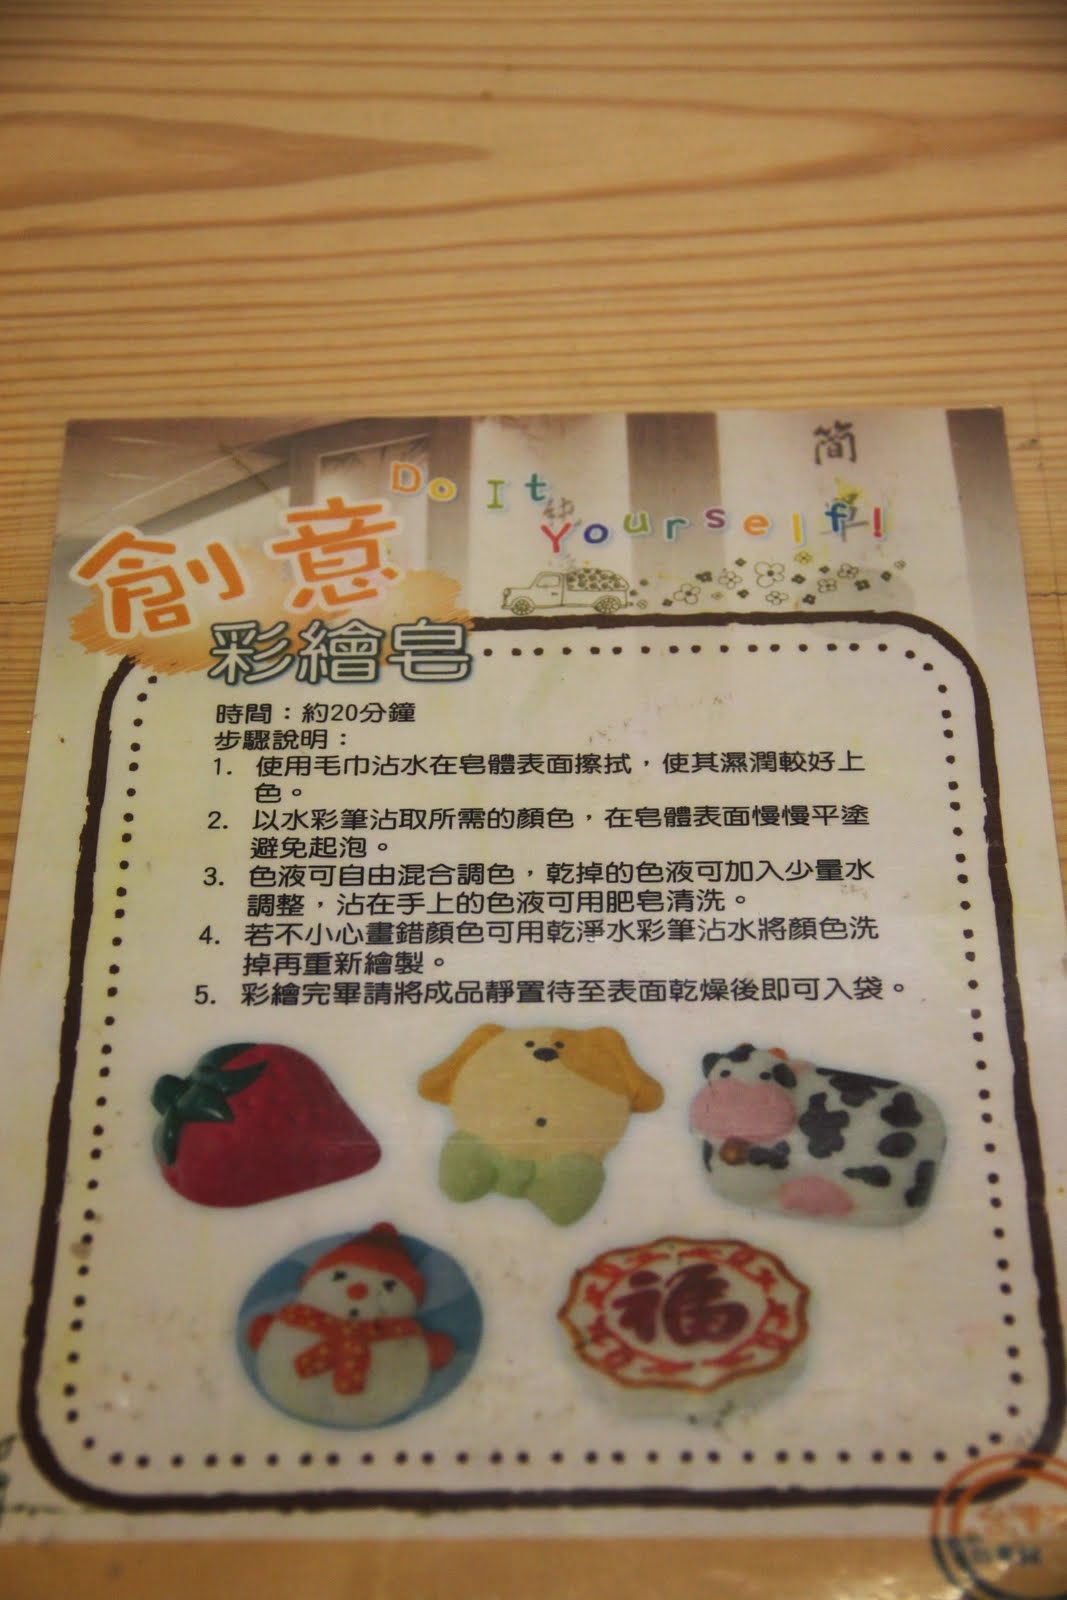 Do It
Yourself!
簡
創意
彩繪皂
時間：約20分鐘
步驟說明：
1. 使用毛巾沾水在皂體表面擦拭，使其濕潤較好上
色。
2. 以水彩筆沾取所需的顏色，在皂體表面慢慢平塗
避免起泡。
3. 色液可自由混合調色，乾掉的色液可加入少量水
調整，沾在手上的色液可用肥皂清洗。
4. 若不小心畫錯顏色可用乾淨水彩筆沾水將顏色洗
掉再重新繪製。
5. 彩繪完畢請將成品靜置待至表面乾燥後即可入袋。
福
台灣